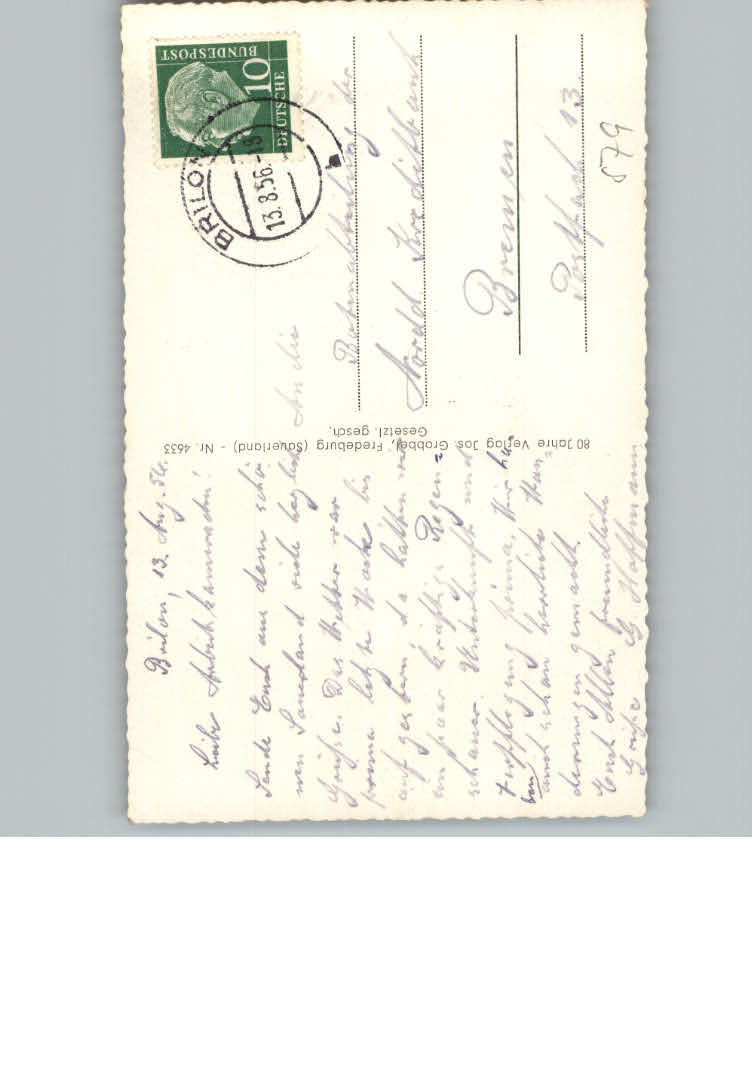 Brilon, 13. Aug. 56.
Liebe Arbeitskameraden!
Sende Euch aus dem schö-
nen Sauerland viele herzliche
Grüße. Das Wetter war
prima letzte Woche bis
auf gestern, da hatten wir
ein paar kräftige Regen-
schauer. Unterkunft und
Verpflegung prima. Wir ha-
ben auch schon herrliche Wan-
derungen gemacht.
Euch Allen freundliche
Grüße G. Hoffmann
80 Jahre Verlag Jos. Grobbel, Fredeburg (Sauerland) - Nr. 4633
Gesetzl. gesch.
DEUTSCHE
BUNDESPOST
10
BRILON
13.8.56.-18
b
An die
Botenabteilung der
Nordd. Kreditbank
Bremen
Postfach 13
579